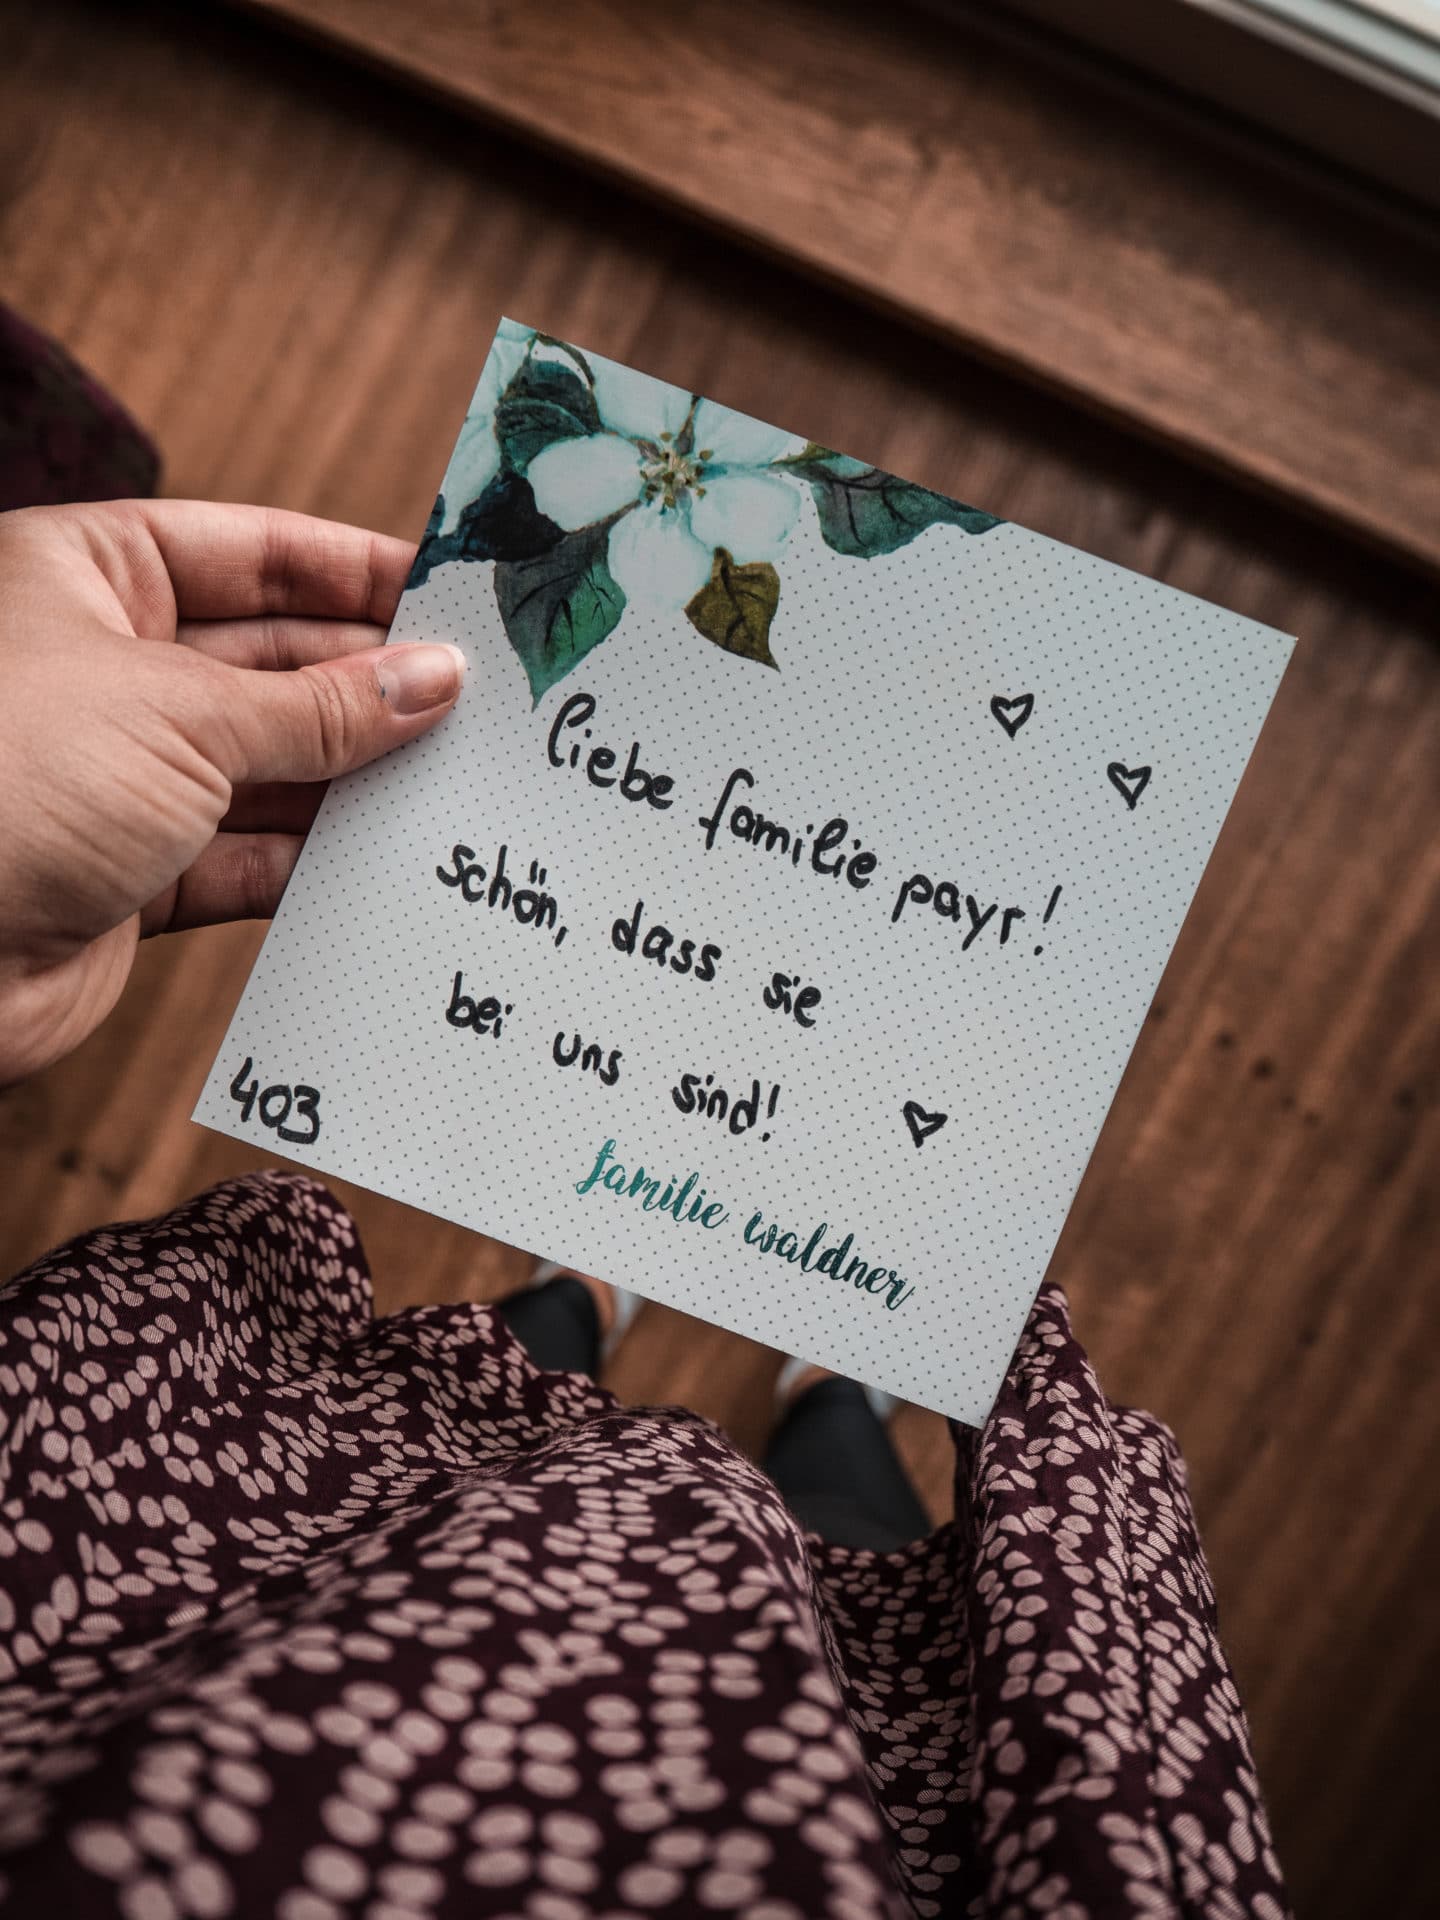 liebe familie payr!
schön, dass sie
bei uns sind!
403
familie waldner